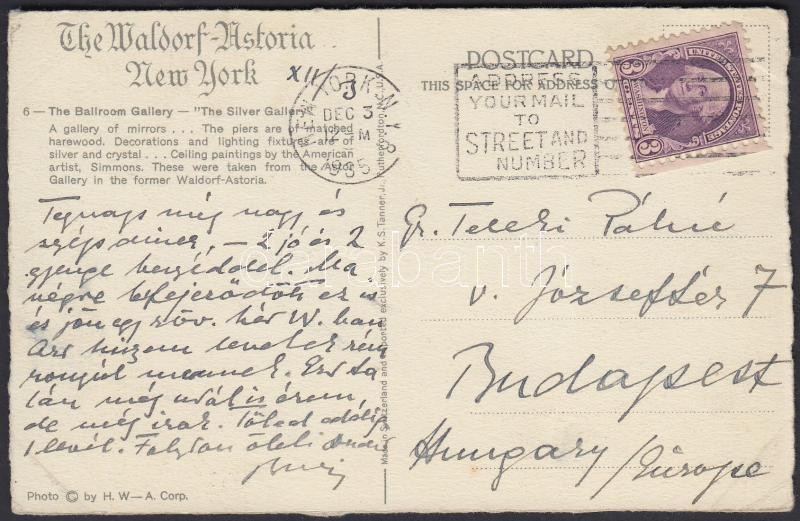 The Waldorf-Astoria
New York
XII/3
NEW YORK, N.Y.
DEC 3
PM
1935
6 — The Ballroom Gallery — "The Silver Gallery"
A gallery of mirrors . . . The piers are of matched
harewood. Decorations and lighting fixtures are of
silver and crystal . . . Ceiling paintings by the American
artist, Simmons. These were taken from the Astor
Gallery in the former Waldorf-Astoria.
Tegnap még nagy és
szép dinner, – 2 jó és 2
gyenge beszéddel. Ma
végre befejeződött ez is
és jön egy röv. hét W. ban
Azt hiszem levelek
mennek.
tán még előbb érem,
de még írok. Tőled eddig
1 levél. Folyton ölel
Photo © by H. W—A. Corp.
Made in Switzerland and imported exclusively by K. S. Tanner, Jr., Rutherfordton, N.C., U.S.A.
POSTCARD
THIS SPACE FOR ADDRESS
ADDRESS
YOUR MAIL
TO
STREET AND
NUMBER
UNITED STATES POSTAGE
3 CENTS 3
darabanth
Gr. Teleki Pálné
v. József tér 7
Budapest
Hungary / Europe